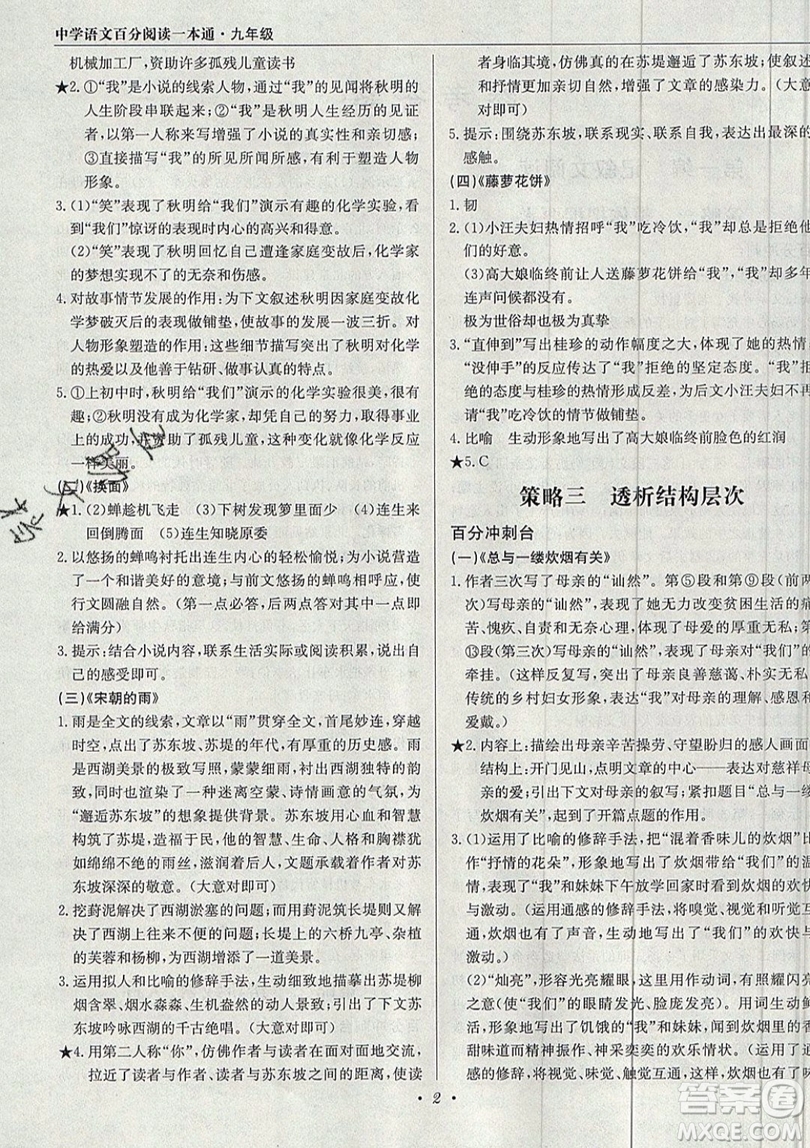 中学语文百分阅读一本通·九年级
机械加工厂，资助许多孤残儿童读书
★2. ①“我”是小说的线索人物，通过“我”的见闻将秋明的
人生阶段串联起来；②“我”是秋明人生经历的见证
者，以第一人称来写增强了小说的真实性和亲切感；
③直接写“我”的所见所闻所感，有利于塑造人物
形象。
3. (1)“笑”表现了秋明给“我们”演示有趣的化学实验，看
到“我们”惊讶的表现后的高兴和得意。
(2)“笑”表现了秋明回忆自己遭逢家庭变故后，化学家
的梦想实现不了的无奈和伤感。
4. 对故事情节发展的作用：为下文叙述秋明因家庭变故化
学梦破灭后的表现做铺垫，使故事的发展一波三折。对
人物形象塑造的作用：这些细节描写突出了秋明对化学
的热爱以及他善于钻研、做事认真的特点。
5. ①上初中时，秋明给“我们”演示的化学实验很美、很有
趣；②秋明没有成为化学家，却凭着自己的努力，取得事
业上的成功，并资助了孤残儿童，这种变化就像化学反应
一样美丽。
(二)《换面》
★1. (2)蝉趁机飞走 (3)下树发现箩里面少 (4)连生来
回倒腾面 (5)连生知晓原委
2. 以悠扬的蝉鸣衬托出连生内心的轻松愉悦；为小说营造
了一个和谐美好的意境；与前文悠扬的蝉鸣相呼应，使
行文圆融自然。(第一点必答，后两点答对其中一点即
给满分)
3. 提示：结合小说内容，联系生活实际或阅读积累，说出自
己的感受即可。
(三)《宋朝的雨》
1. 雨是全文的线索，文章以“雨”贯穿全文，首尾妙连，穿越
时空，点出苏东坡、苏堤的年代，有厚重的历史感。雨
是西湖美景的一种映照，蒙蒙细雨，衬托出西湖独特的韵
致，同时也为作品增添了一种迷离空蒙、诗情画意的气氛，为
“邂逅苏东坡”的想象提供背景。苏东坡为治理西湖
构筑了苏堤，造福于民，他的智慧、生命力和胸襟犹
如绵绵不绝的雨丝，万古流传。文章承载了作者对苏
东坡深深的敬意。(大意对即可)
2. 挖葑泥解决了西湖淤塞的问题；而用葑泥筑长堤，又解决
了葑泥堆放的问题；长堤上的六桥九亭、杂植
的芙蓉和杨柳，为西湖增添了一道美景。
3. 运用拟人和比喻的修辞手法，生动细致地描摹出苏堤柳
烟含翠、烟水淼淼、生机盎然的迷人景象；引出了下文苏
东坡吟咏西湖的千古绝唱。(大意对即可)
★4. 用第二人称“你”，仿佛作者与读者在面对面地交流，
拉近了读者与作者及苏东坡之间的距离感，使读
者身临其境，仿佛真的在苏堤邂逅了苏东坡，使叙述
和抒情更加亲切自然，增强了文章的感染力。(大意
对即可)
5. 提示：围绕苏东坡，联系现实、联系自我，表达出最深的
感触。
(四)《藤萝花饼》
1. 韧
2. (1)小汪夫妇热情招呼“我”吃冷饮，“我”拒绝了他
们的好意。
(3)高大娘临终前让人送藤萝花饼给“我”，“我”却多年
连声问候都没有
极为世俗却也极为真挚
3. “直伸到”写出桂珍的动作幅度之大，体现了她的热情
“没伸手”的细节表现了“我”拒绝的坚定态度。“我”
拒绝的态度与桂珍的热情形成反差，为后文小汪夫妇
请“我”吃冷饮的情节做铺垫。
4. 比喻 生动形象地写出了高大娘临终前脸色的红润
★5. C
策略三 透析结构层次
百分冲刺台
(一)《总与一缕炊烟有关》
1. 作者三次写了母亲的“讪然”。第⑤段和第⑨段(前两
次)写母亲的“讪然”，表现了她无力改变贫困生活的痛
苦、愧疚、自责和无奈心理，体现了母爱的厚重无私；第
⑬段(第三次)写母亲的“讪然”，体现了母亲对孩子的
牵挂。(这样反复写，突出了母亲良善慈蔼、朴实无华的
传统的乡村妇女形象，表现了对母亲的理解、感恩和
爱戴。)
★2. 内容上：描绘出母亲辛苦操劳、守望盼归的感人画面
结构上：开门见山，点明文章的中心——表达对慈祥母
爱的赞美；引出下文的叙述；照应文章题目“总与一缕
炊烟有关”，起到了开篇点题的作用。
3. (1)运用了比喻的修辞手法，把“混着香味儿的炊烟”比
作“抒情的花朵”，形象地写出了炊烟带给“我们”的温
馨，表现了“我”和妹妹下晚学看到炊烟时的欢快、幸福
与激动。(运用通感的修辞手法，将嗅觉、视觉、触觉、听
觉等沟通，生动形象地写出了“我们”的欢快与
与激动。)
(2)“灿亮”，形容光亮耀眼，这里用作动词，有闪现光亮
之意(使“我们”的眼睛放光、脸庞发亮)。用词生动鲜
明，形象地写出了饥饿的“我”和妹妹，嗅到米饭的香
甜味道而精神振作、神采奕奕的欢乐情形，表现了贫困
生活中“我们”因一顿白米饭而产生的欣喜与满足。
· 2 ·